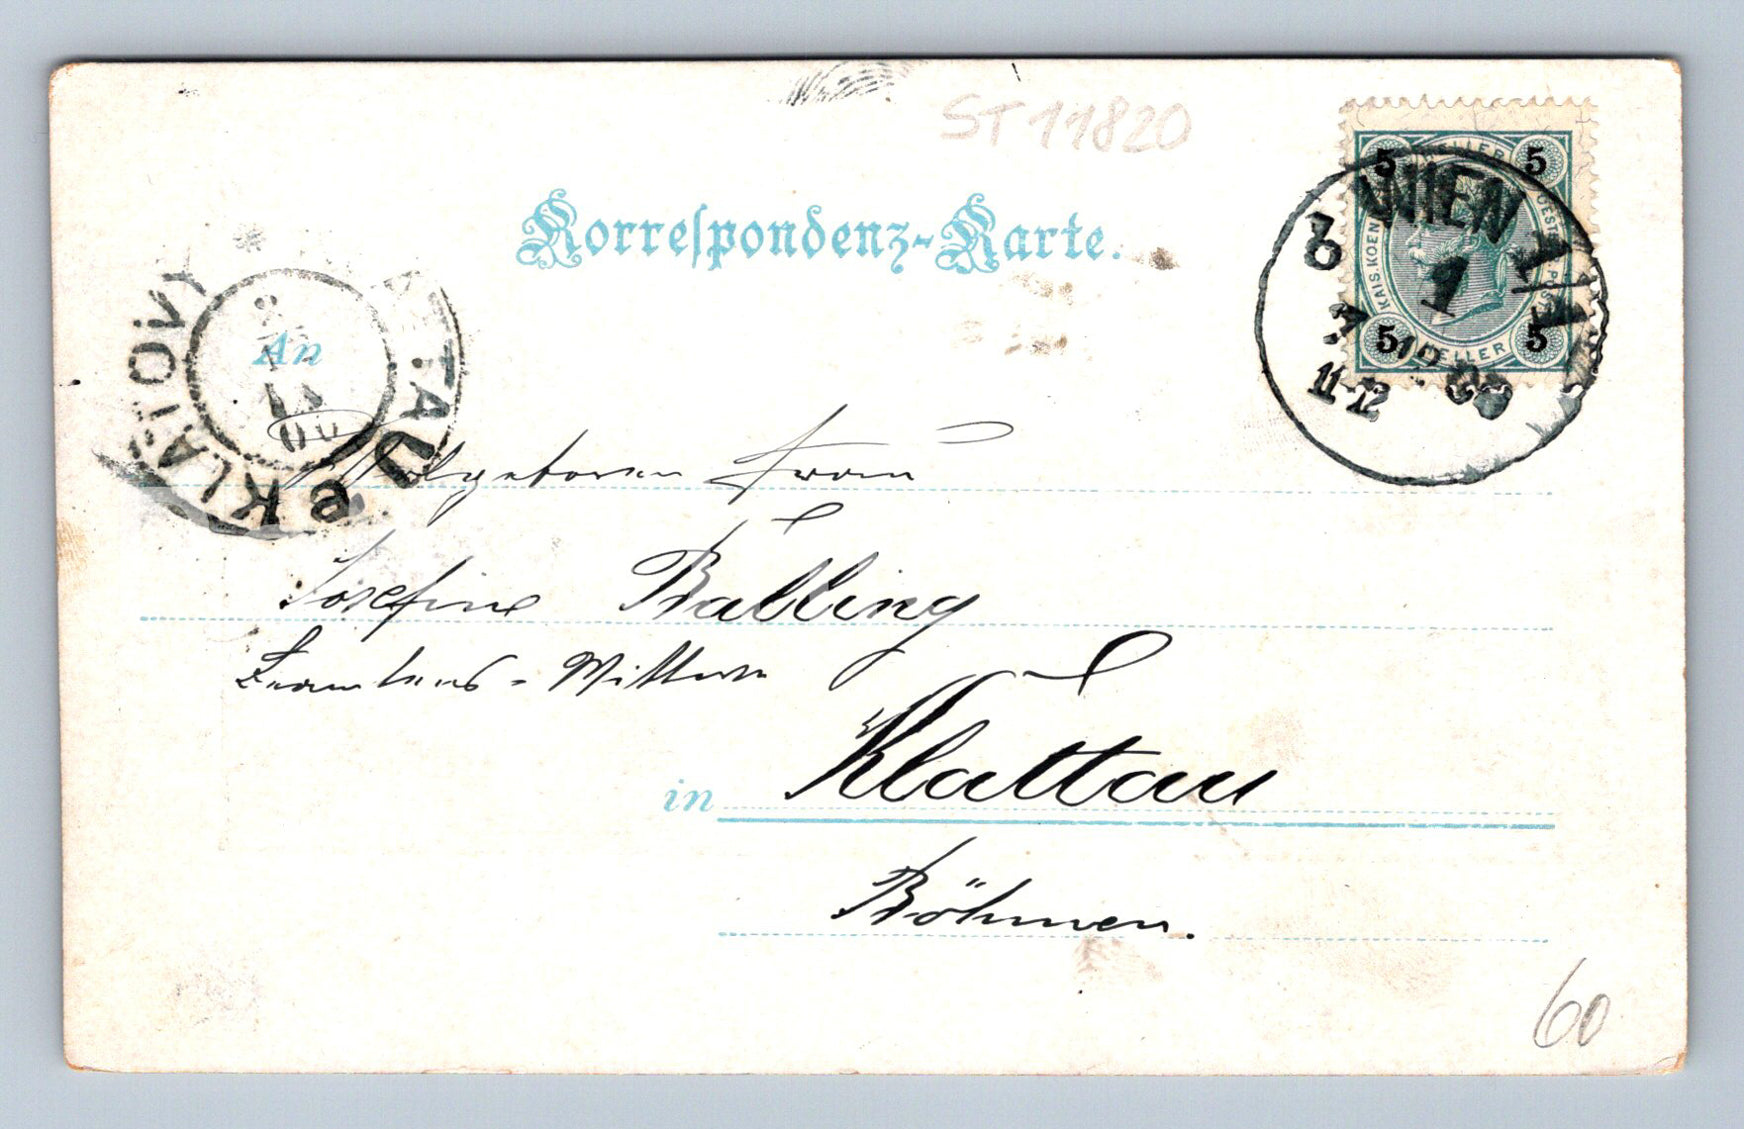 ST 11820
Korrespondenz-Karte.
5 HELLER 5
KAIS. KOEN. OESTR. POST
5 HELLER 5
WIEN 1/1
1
11-12
An
KLATOVY
KLATTAU
Wohlgeboren Frau
Josefine Balling
Beamtens-Wittwe
in Klattau
Böhmen.
60